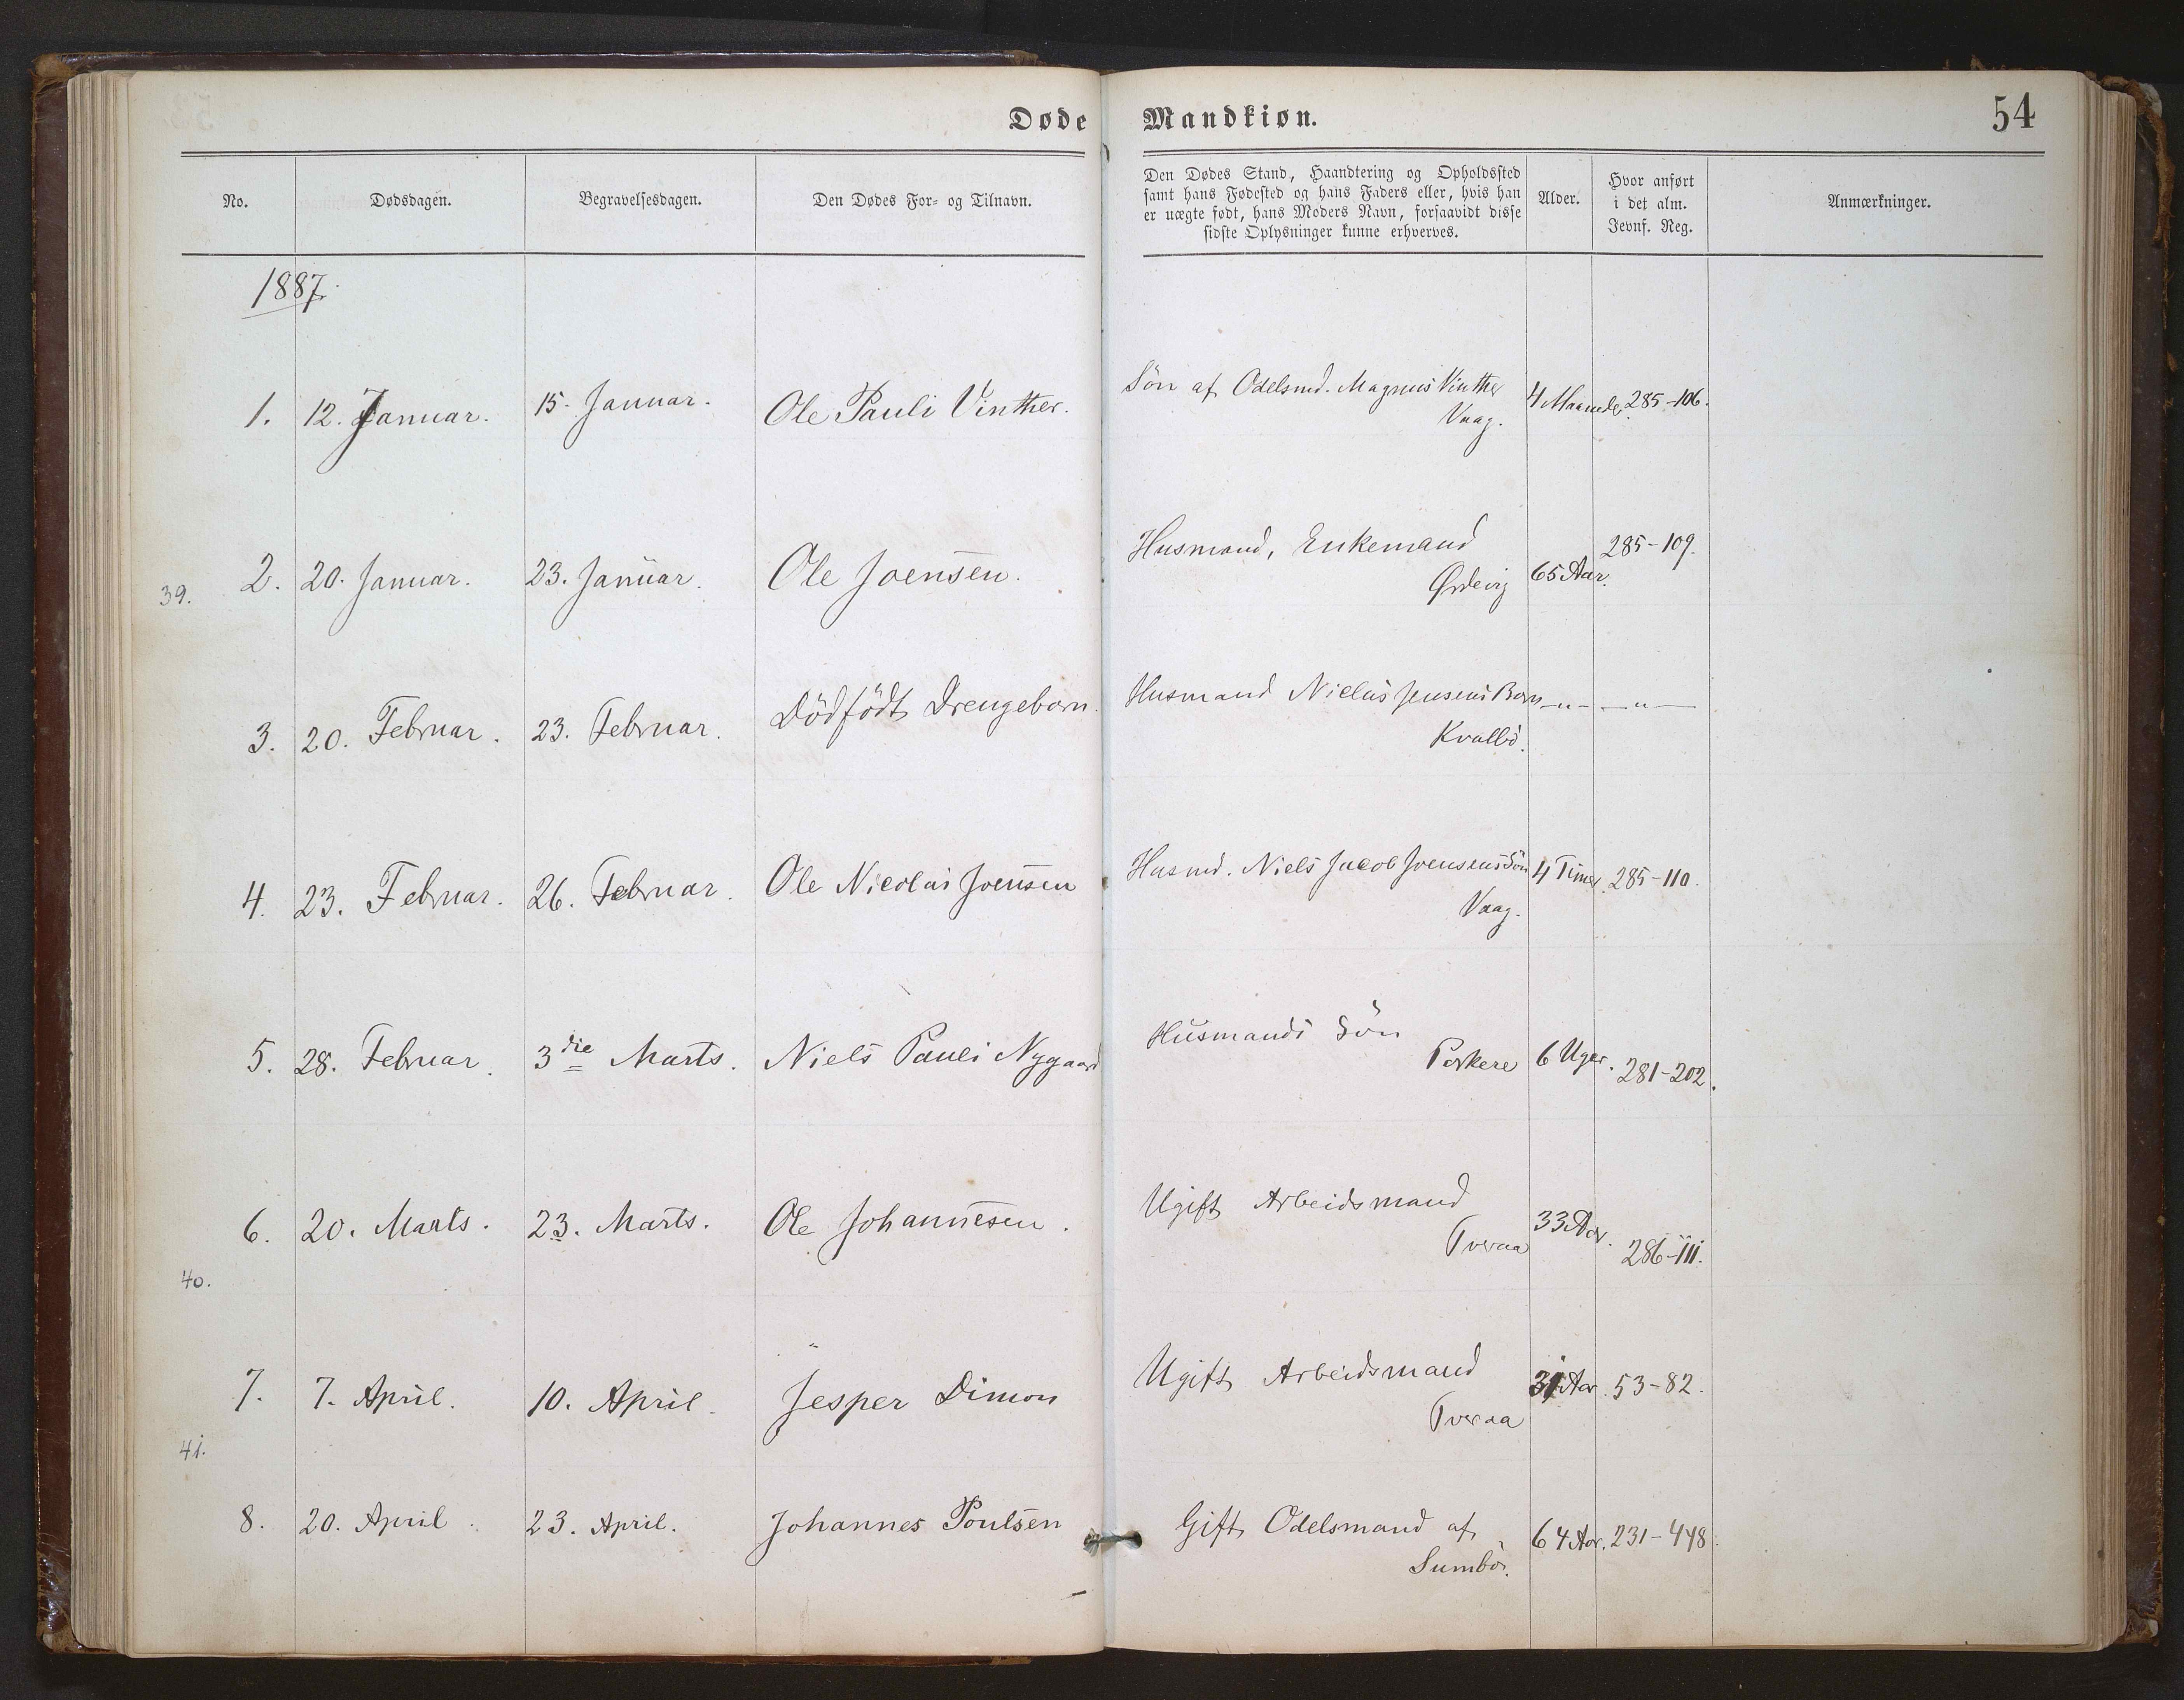 Døde Mandkiøn.
54
No.
Dødsdagen.
Begravelsesdagen.
Den Dødes For- og Tilnavn.
Den Dødes Stand, Haandtering og Opholdssted
samt hans Fødested og hans Faders eller, hvis han
er uægte født, hans Moders Navn, forsaavidt disse
sidste Oplysninger kunne erhverves.
Alder.
Hvor anført
i det alm.
Jevnf. Reg.
Anmærkninger.
1887.
1. 12. Januar. 15. Januar. Ole Pauli Vinther. Sön af Odelsmd. Magnus Vinther 4 Maaneder. 285-106.
Vaag.
39. 2. 20. Januar. 23. Januar. Ole Joensen. Husmand, Enkemand 65 Aar. 285-109.
Ørdevig
3. 20. Februar. 23. Februar. Dödfödt Drengebarn. Husmand Niclas Jensens Barn -"- -"-
Kvalbö.
4. 23. Februar. 26. Februar. Ole Nicolai Joensen Husmd. Niels Jacob Joensens Sön 4 Timer. 285-110.
Vaag.
5. 28. Februar. 3die Marts. Niels Pauli Nygaard Husmands Sön 6 Uger. 281-202.
Porkere
6. 20. Marts. 23. Marts. Ole Johannesen. Ugift Arbeidsmand 33 Aar. 286-111.
Tveraa
40.
7. 7. April. 10. April. Jesper Dimon Ugift Arbeidsmand 31 Aar. 53-82.
Tveraa
41.
8. 20. April. 23. April. Johannes Poulsen Gift Odelsmand af 64 Aar. 231-448.
Sumbö.